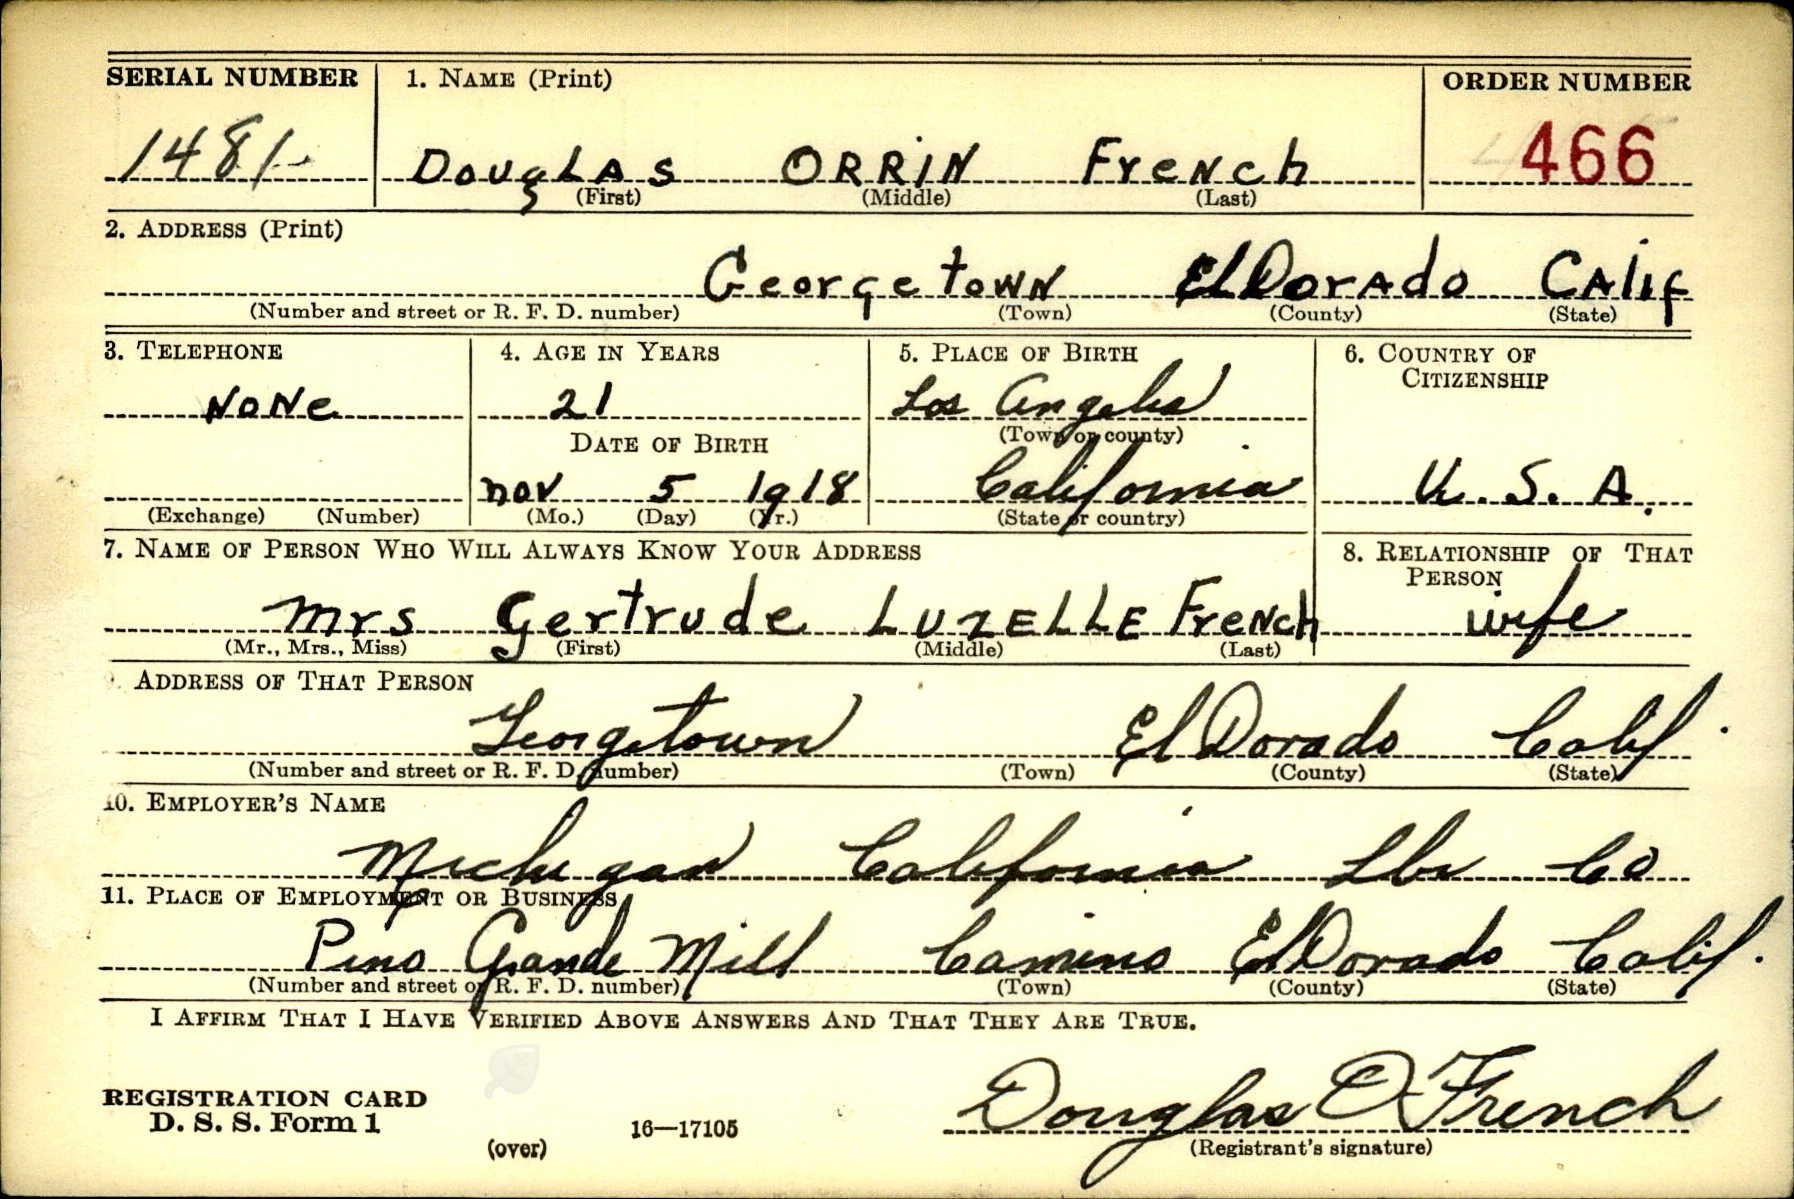 SERIAL NUMBER 1. NAME (Print) ORDER NUMBER
1481 DOUgLAS ORRIN FreNch 466
(First) (Middle) (Last)
2. ADDRESS (Print)
GeorgetowN ElDorAdo CAlif
(Number and street or R. F. D. number) (Town) (County) (State)
3. TELEPHONE 4. AGE IN YEARS 5. PLACE OF BIRTH 6. COUNTRY OF CITIZENSHIP
NoNe 21 Los Angeles
DATE OF BIRTH (Town or county)
nov 5 1918 California U. S. A.
(Exchange) (Number) (Mo.) (Day) (Yr.) (State or country)
7. NAME OF PERSON WHO WILL ALWAYS KNOW YOUR ADDRESS 8. RELATIONSHIP OF THAT PERSON
mrs Gertrude LUZELLE FreNch wife
(Mr., Mrs., Miss) (First) (Middle) (Last)
9. ADDRESS OF THAT PERSON
Georgetown El Dorado Calif.
(Number and street or R. F. D. number) (Town) (County) (State)
10. EMPLOYER'S NAME
Michigan California Lbr Co
11. PLACE OF EMPLOYMENT OR BUSINESS
Pino Grande Mill Camino El Dorado Calif.
(Number and street or R. F. D. number) (Town) (County) (State)
I AFFIRM THAT I HAVE VERIFIED ABOVE ANSWERS AND THAT THEY ARE TRUE.
REGISTRATION CARD
D. S. S. Form 1 16—17105 Douglas O French
(over) (Registrant's signature)